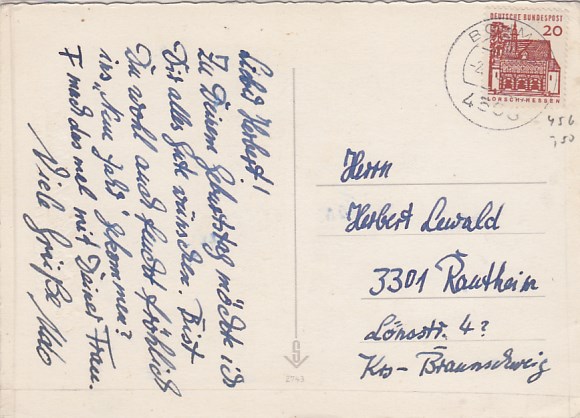 Liebe Herbert!
Zu Deinem Geburtstag möchte ich
Dir alles Gute wünschen. Bist
Du wohl auch feucht fröhlich
ins "Neue Jahr" gekommen?
F mach das mal mit Deiner Frau.
Viele Grüße
DEUTSCHE BUNDESPOST
20
LORSCH/HESSEN
456
7,50
Herrn
Herbert Lewald
3301 Rautheim
Lönsstr. 4?
Krs Braunschweig
2743